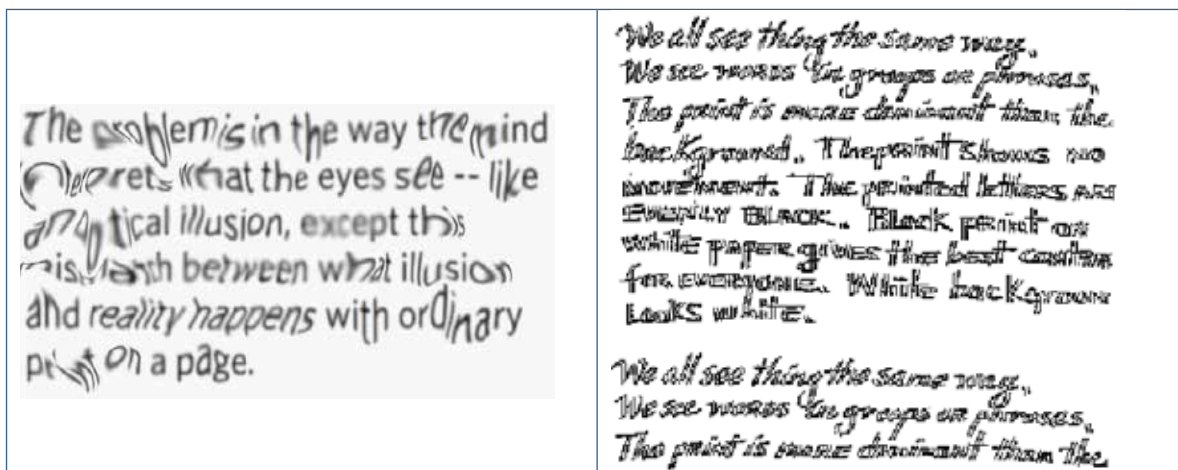 The problem is in the way the mind
interprets what the eyes see -- like
an optical illusion, except this
mismatch between what illusion
and reality happens with ordinary
print on a page.
We all see thing the same way.
We see words in groups or phrases.
The print is more dominant than the
background. The print shows no
movement. The printed letters are
EVENLY BLACK. Black print on
white paper gives the best
for everyone. White backgroun
Looks white.
We all see thing the same way.
We see words in groups or phrases.
The print is more dominant than the